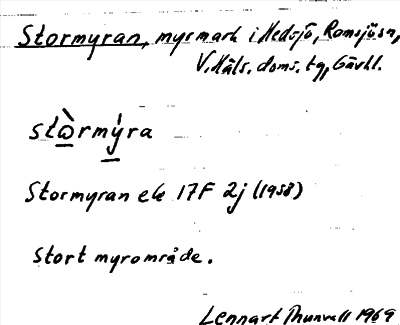 Stormyran, myrmark i Hedsjö, Romsjösn,
V. Häls. doms. tg, Gävhl.
stòrmýra
Stormyran ek 17F 2j (1958)
Stort myrområde.
Lennart Thunvall 1969